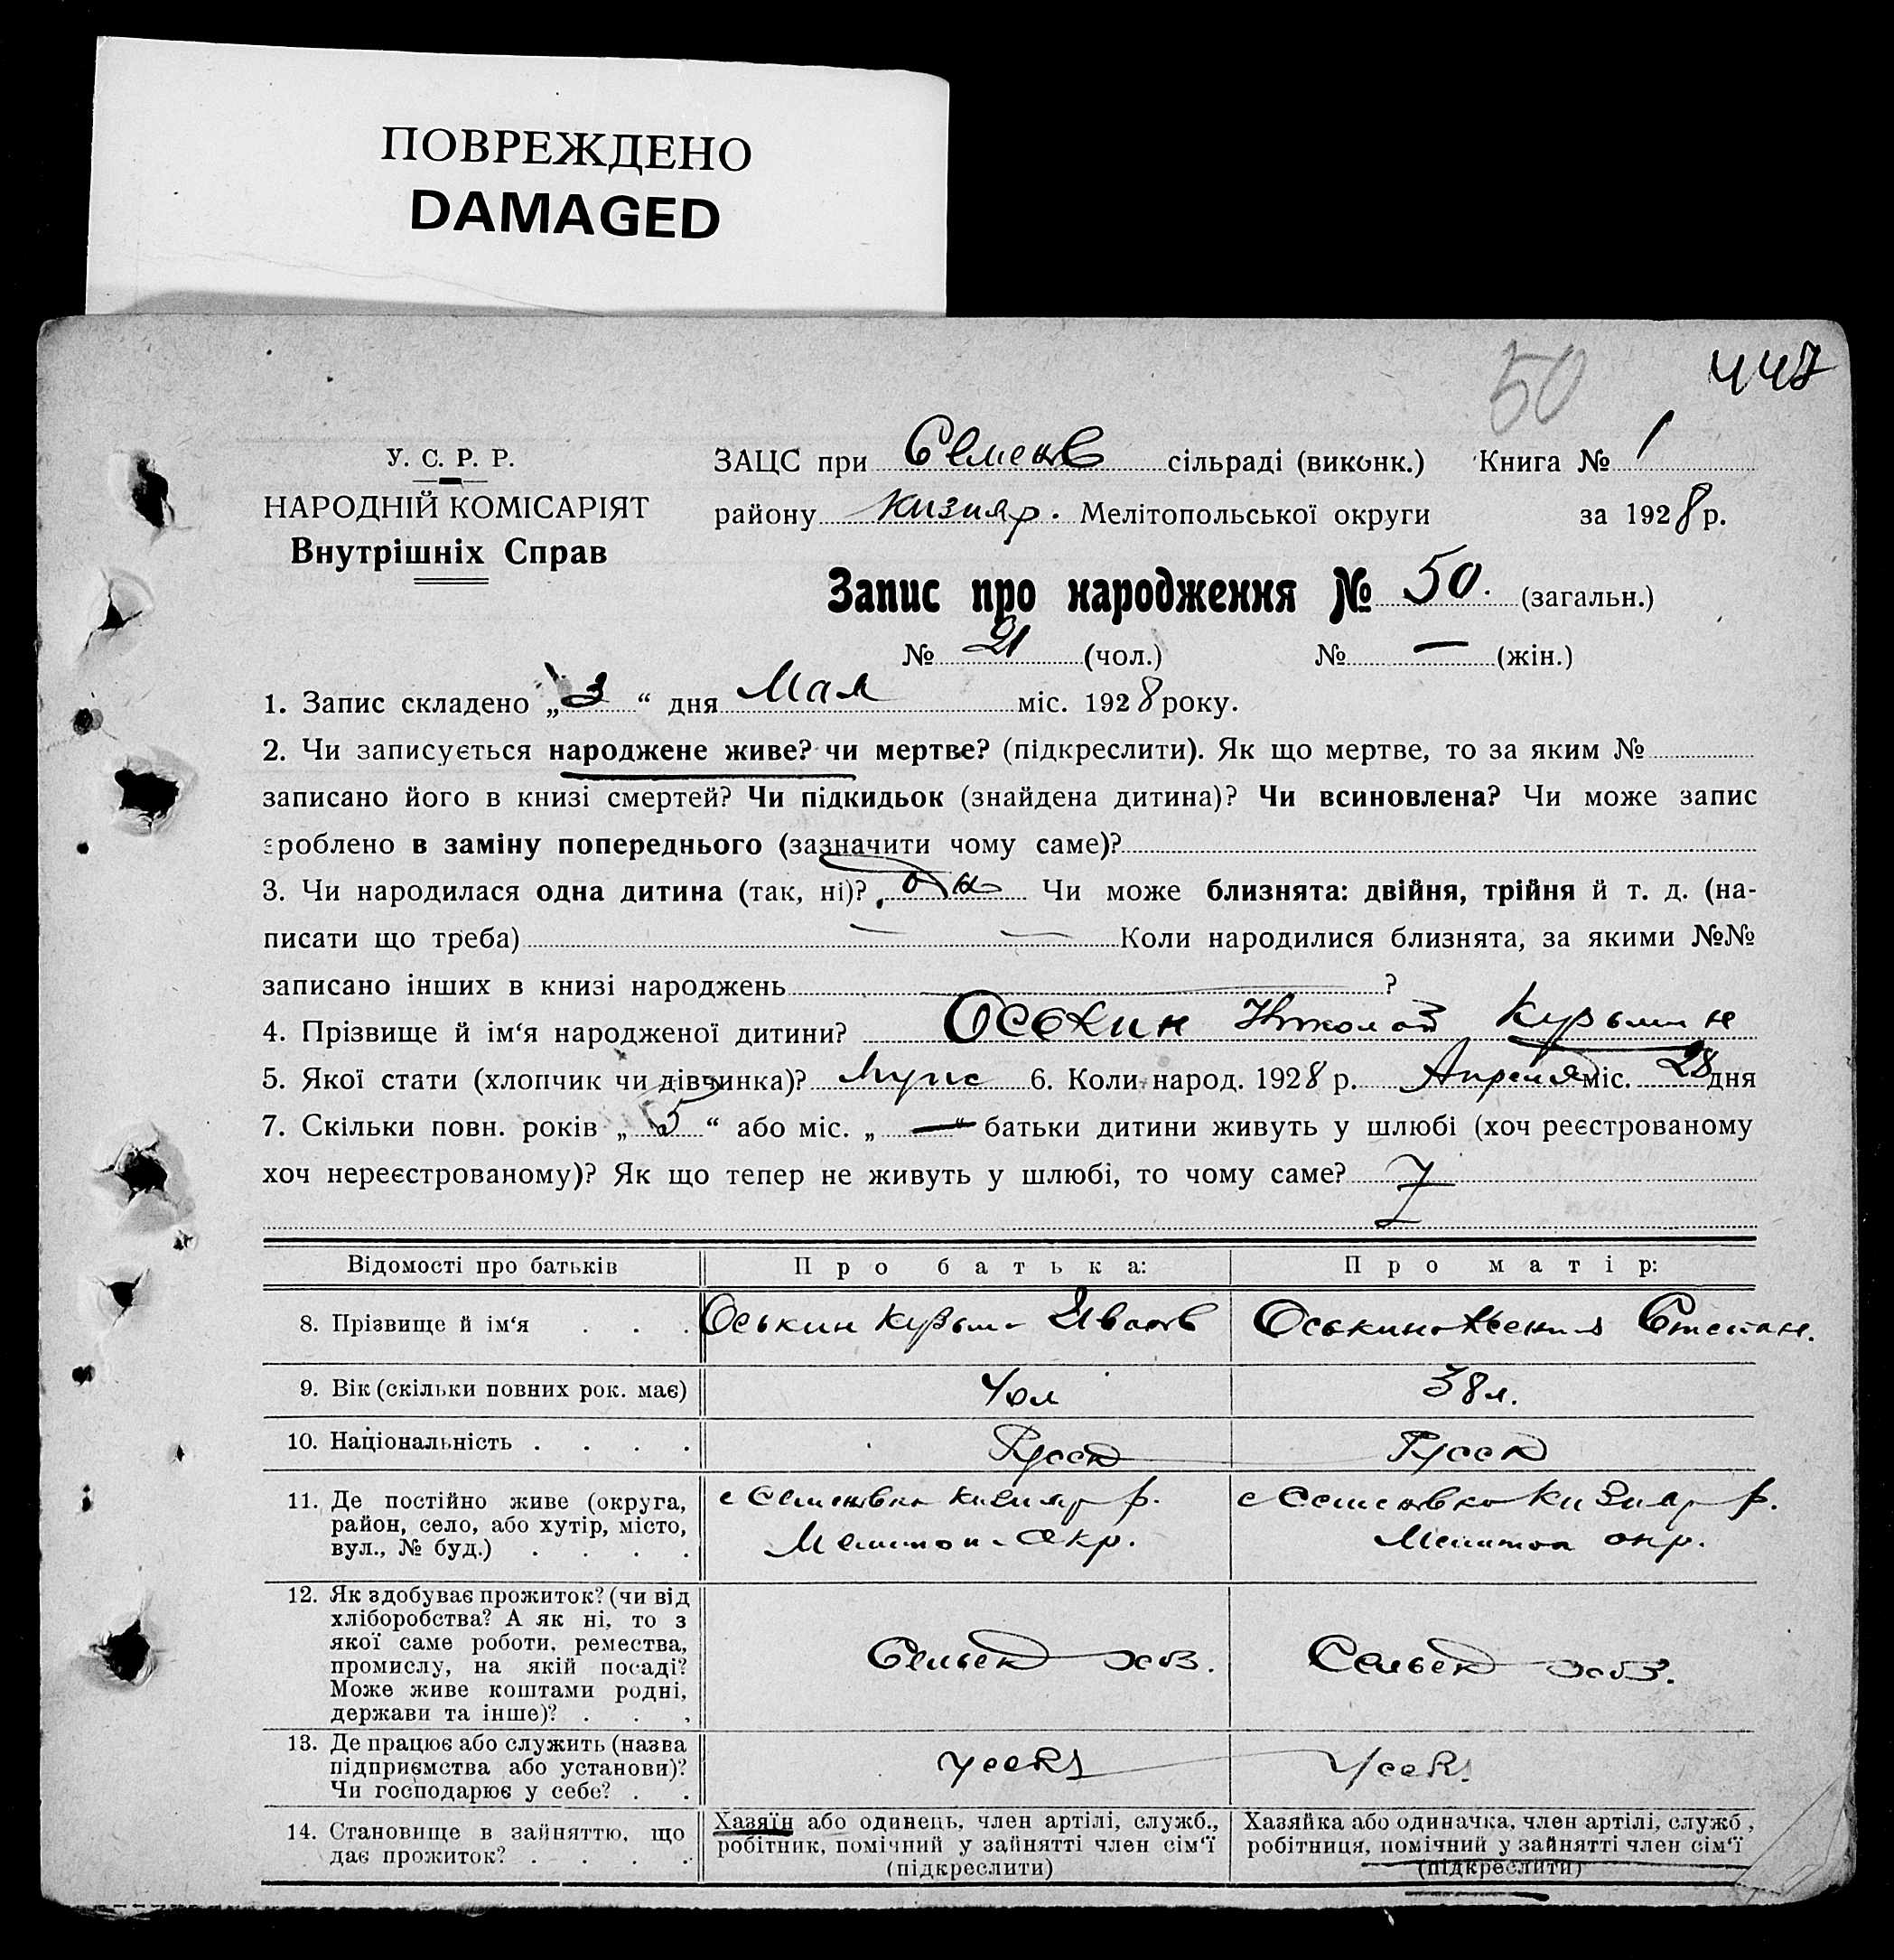 ПОВРЕЖДЕНО
DAMAGED
50 447
У. С. Р. Р.
НАРОДНІЙ КОМІСАРІЯТ
Внутрішніх Справ
ЗАЦС при Семенов сільраді (виконк.) Книга № 1
району Кизияр. Мелітопольської округи за 1928 р.
Запис про народження № 50. (загальн.)
№ 21 (чол.) № — (жін.)
1. Запис складено „3“ дня Мая міс. 1928 року.
2. Чи записується народжене живе? чи мертве? (підкреслити). Як що мертве, то за яким №
записано його в книзі смертей? Чи підкидьок (знайдена дитина)? Чи всиновлена? Чи може запис
зроблено в заміну попереднього (зазначити чому саме)?
3. Чи народилася одна дитина (так, ні)? Чи може близнята: двійня, трійня й т. д. (на-
писати що треба) Коли народилися близнята, за якими №№
записано інших в книзі народжень ?
4. Прізвище й ім‘я народженої дитини? Оськин Николай Кузьмин
5. Якої стати (хлопчик чи дівчинка)? Мужс 6. Коли народ. 1928 р. Апреля міс. 28 дня
7. Скільки повн. років „5“ або міс. „—“ батьки дитини живуть у шлюбі (хоч реєстрованому
хоч нереєстрованому)? Як що тепер не живуть у шлюбі, то чому саме?
Відомості про батьків Про батька: Про матір:
8. Прізвище й ім‘я . . . Оськин Кузьма Иванов Оськина Ксения Степан.
9. Вік (скільки повних рок. має) 40 л 38 л.
10. Національність . . . . Русск Русск
11. Де постійно живе (округа,
район, село, або хутір, місто,
вул., № буд.) . . . .
с Семеновка Кизияр р.
Мелитоп. окр.
с Семеновка Кизияр р.
Мелитоп окр.
12. Як здобуває прожиток? (чи від
хліборобства? А як ні, то з
якої саме роботи, ремества,
промислу, на якій посаді?
Може живе коштами родні,
держави та інше)? . . .
Сельск хоз. Сельск хоз.
13. Де працює або служить (назва
підприємства або установи)?
Чи господарює у себе? . .
у себя у себя
14. Становище в зайняттю, що
дає прожиток? . . . .
Хазяїн або одинець, член артілі, служб.,
робітник, помічний у зайнятті член сім‘ї
(підкреслити)
Хазяйка або одиначка, член артілі, служб.,
робітниця, помічний у зайнятті член сім‘ї
(підкреслити)